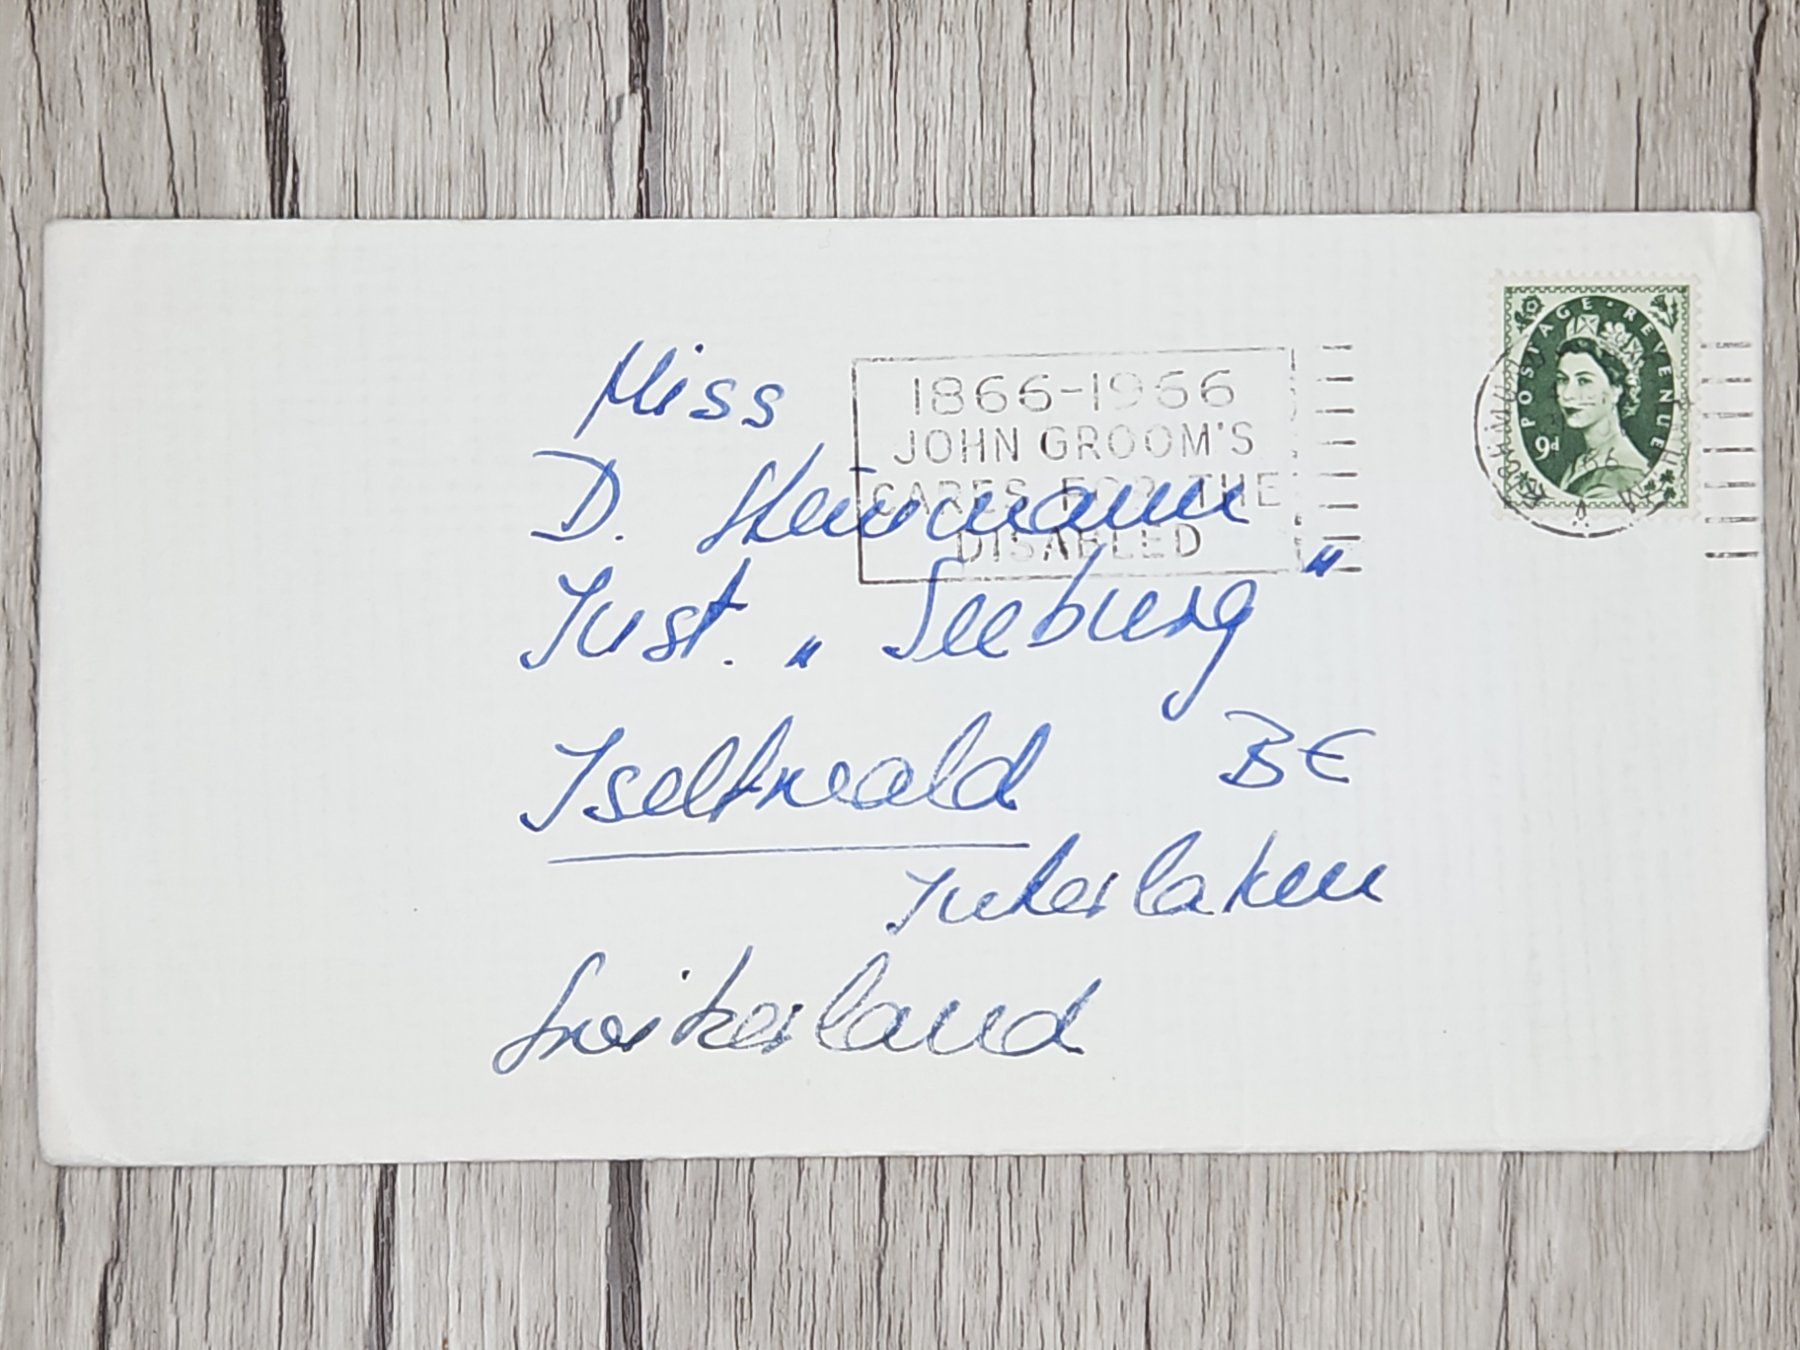 Miss
D. Steinmann
Inst. „Seeburg"
Iseltwald BE
Interlaken
Switzerland
1866-1966
JOHN GROOM'S
CARES FOR THE
DISABLED
POSTAGE · REVENUE
9d